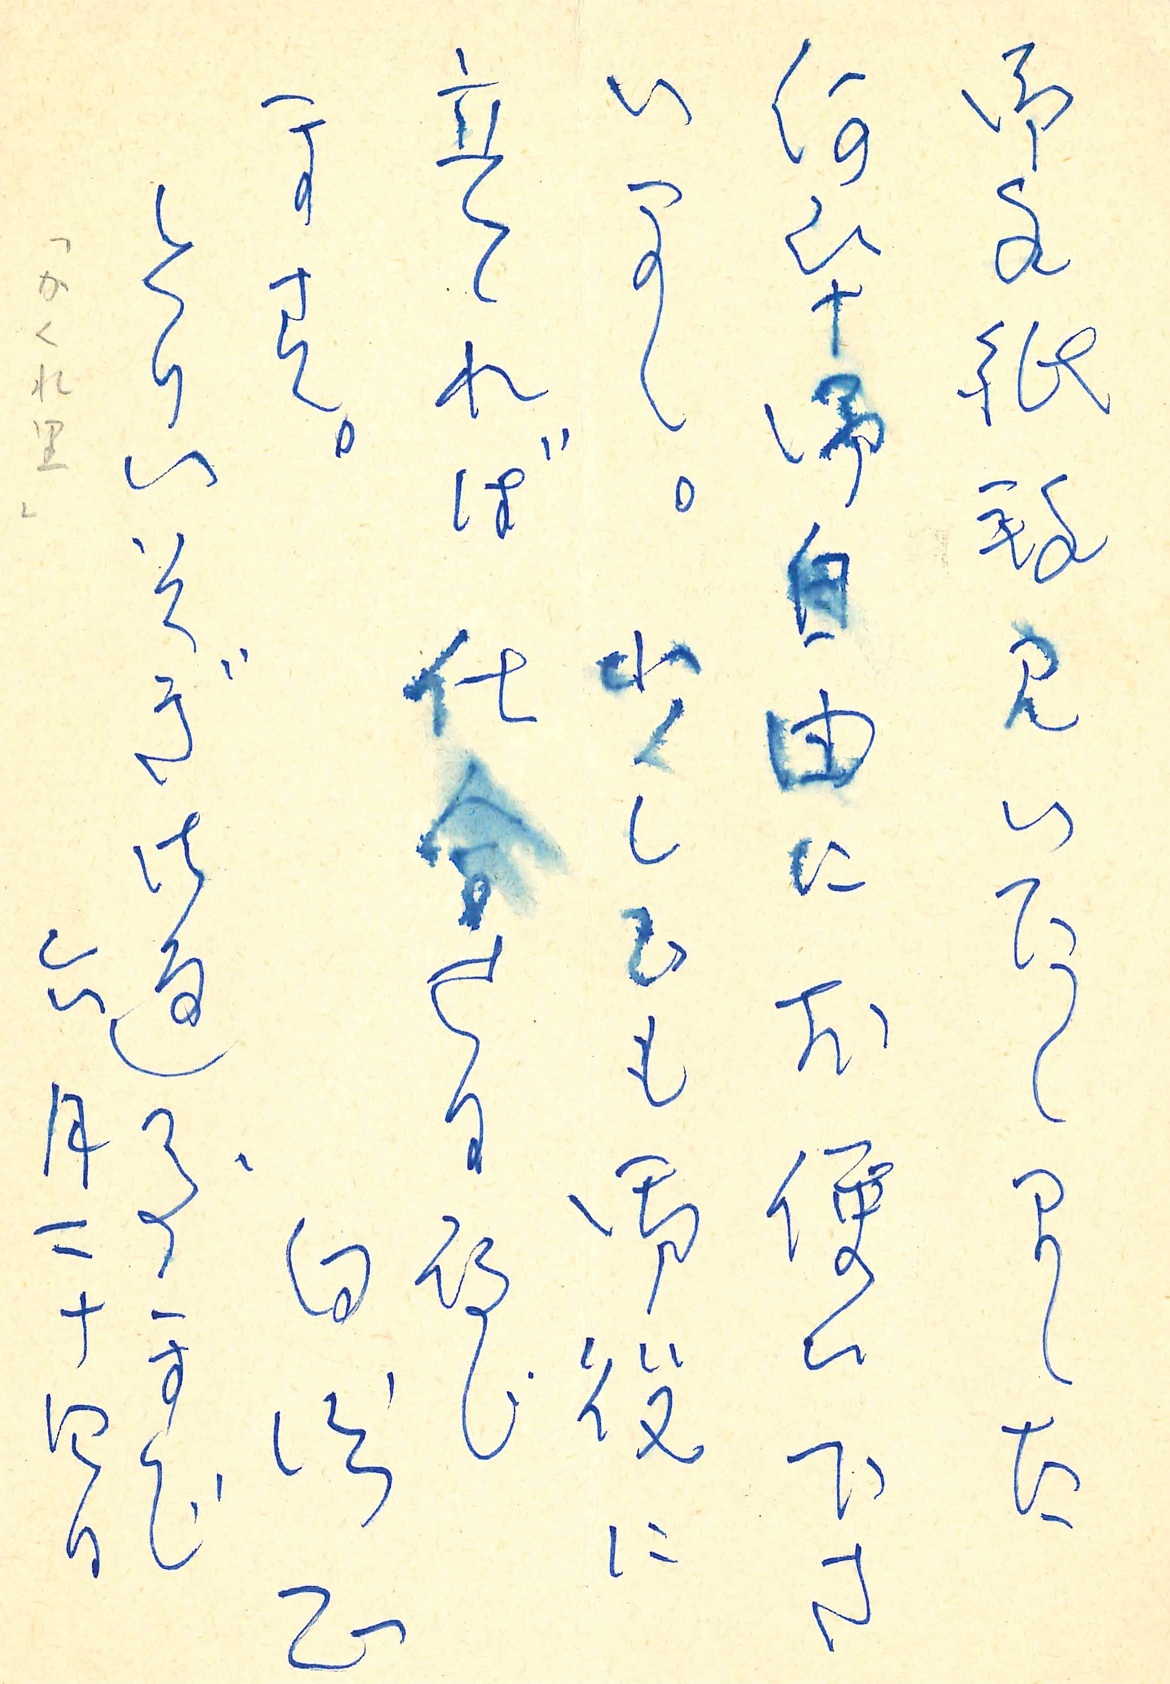 御手紙拝見いたしました
何卒御自由にお使い下さ
いまし。 少しでも御役に
立てれば 仕合せに存じ
ます。
白洲 正
とりいそぎ御返事まで
六月二十四日
「かくれ里」